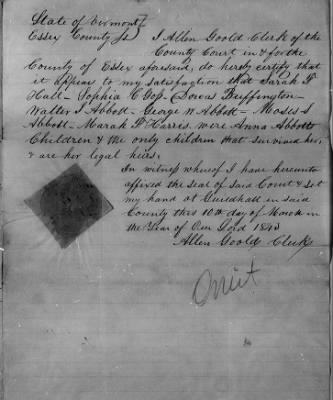 State of Vermont }
Essex County ss I Allen Goold Clerk of the
County Court in & for the
County of Essex aforesaid, do hereby certify that
it appears to my satisfaction that Sarah F
Hall - Sophia C Goss - Buffington -
Walter I Abbott - George W Abbott - Moses S
Abbott - Marah P Harris, were Anna Abbott
Children & the only children that survived her,
& are her legal heirs.
In witness whereof I have hereunto
affixed the seal of said Court & set
my hand at Guildhall in said
County this 10th day of March in
the Year of Our Lord 18
Allen Goold Clerk